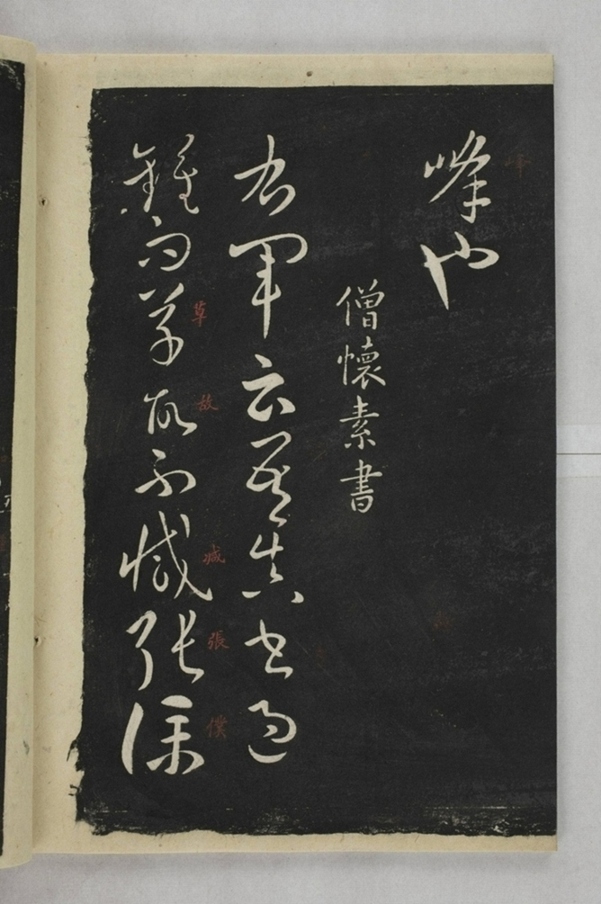 峰也
峰
僧懷素書
右軍云吾真書過
鍾而草故不減張僕
草
故
減
張
僕